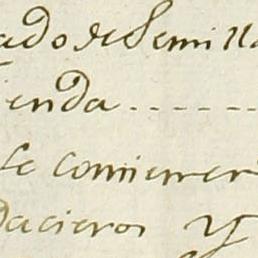 ado de Semilla
ienda
se comienser
dacieros y